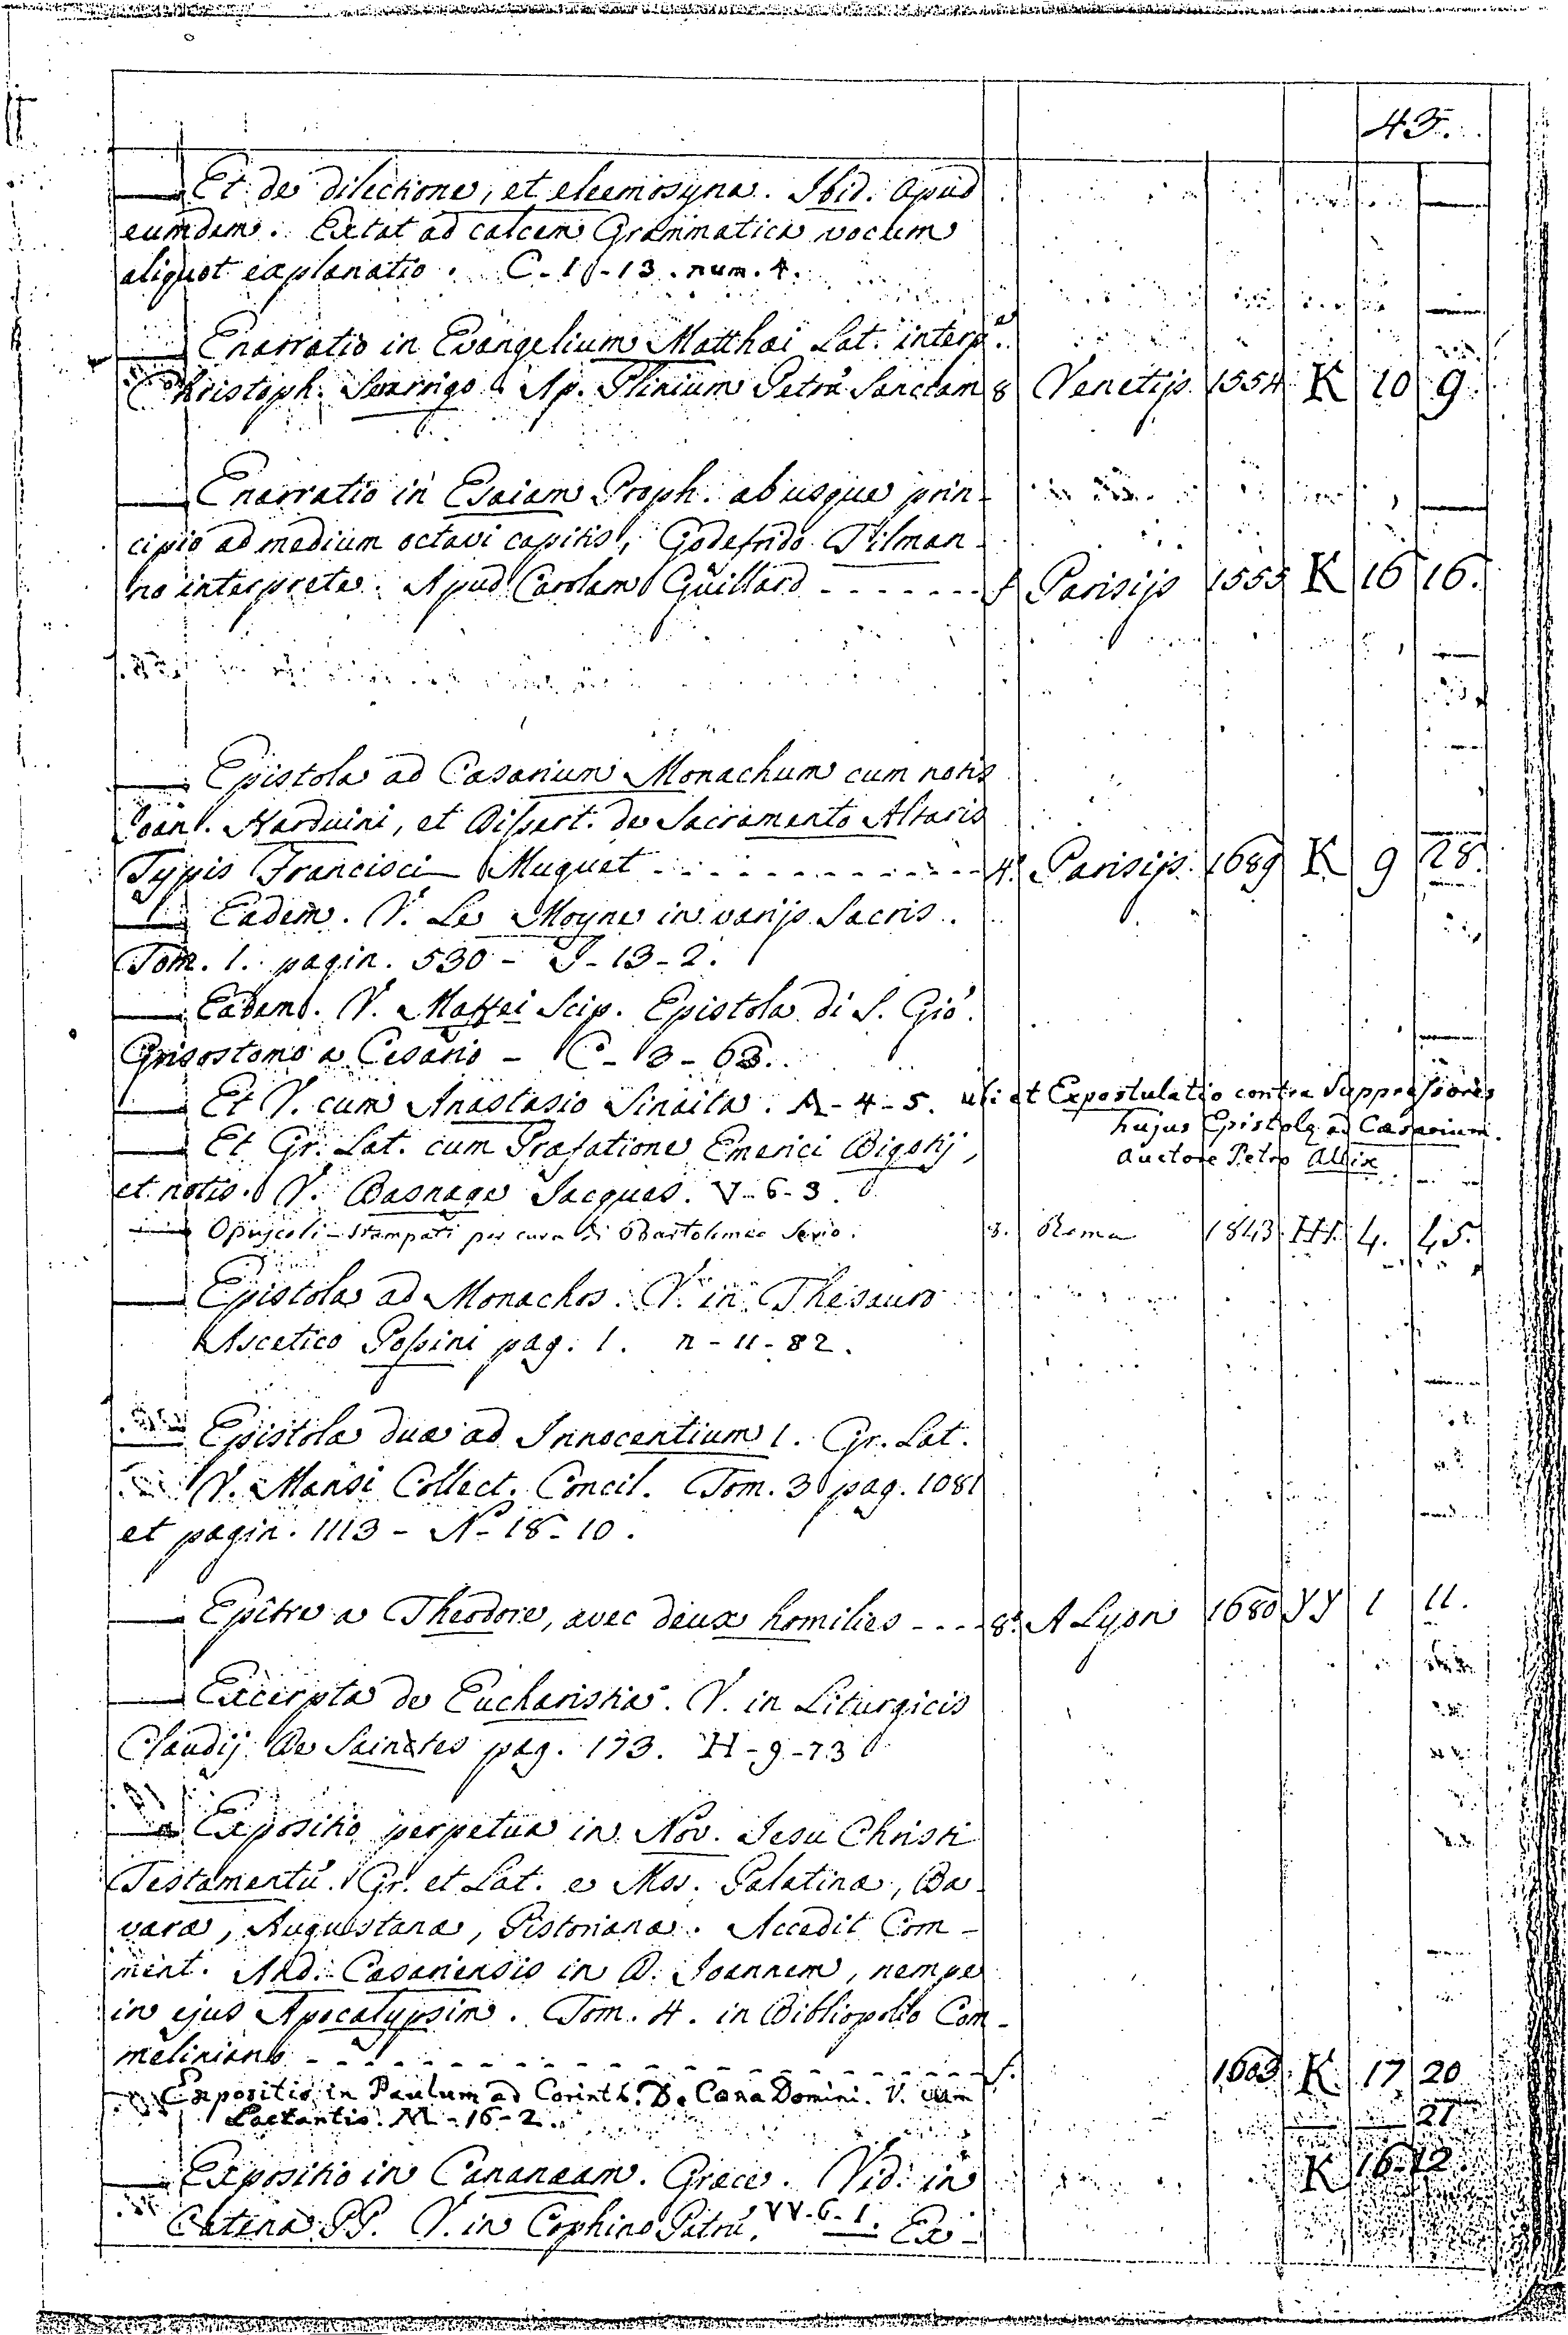 43.
— Et de dilectione, et eleemosyna. Ibid. Apud
eumdem. Extat ad calcem Grammatica vocum
aliquot explanatio. C-11-13. num. 4.
— Enarratio in Evangelium Matthæi Lat. interp.
Christoph. Serarrigo. Ap. Plinium Petrá Sanctam 8 Venetijs. 1554 K 10 9.
— Enarratio in Esaiam Proph. ab usque prin-
cipio ad medium octavi capitis, Godefrido Tilman-
no interprete. Apud Carolam Guillard - - - - - - - f. Parisijs 1555 K 16 16.
— Epistola ad Cæsarium Monachum cum notis
Joan. Harduini, et Dissert. de Sacramento Altaris
Typis Francisci Muguet - - - - - - - - - - - 4. Parisijs. 1689 K 9 28.
— Eadem. V. Le Moyne in varijs Sacris.
Tom. 1. pagin. 530 - J-13-2.
— Eadem. V. Maffei Scip. Epistola di S. Gio.
Grisostomo a Cesario - C-13-63.
— Et V. cum Anastasio Sinaita. A-4-5. ubi et Expostulatio contra Suppressores
hujus Epistolę ad Cæsarium.
auctore Petro Allix
— Et Gr. Lat. cum Præfatione Emerici Bigotij,
et notis. V. Basnage Jacques. V-6-3.
— Opuscoli - Stampati per cura di Bartolomeo Serio. 8. Roma 1843 HH. 4. 45.
— Epistola ad Monachos. V. in Thesauro
Ascetico Possini pag. 1. n-11-82.
— Epistolæ duæ ad Innocentium 1. Gr. Lat.
V. Mansi Collect. Concil. Tom. 3 pag. 1081
et pagin. 1113 - N-18-10.
— Epître a Theodore, avec deux homilies - - - - 8. A Lyon 1680 YY 1 11.
— Excerpta de Eucharistia. V. in Liturgicis
Claudij De Sainctes pag. 173. H-9-73
— Expositio perpetua in Nov. Jesu Christi
Testamentū. Gr. et Lat. e Mss. Palatina, Ba-
vara, Augustana, Pistoriana. Accedit Com-
ment. And. Cæsariensis in D. Joannem, nempe
in ejus Apocalypsim. Tom. 4. in Bibliopolio Com-
meliniano - - - - - - - - - - - - - - f. 1603. K. 17 20
21
— Expositio in Paulum ad Corinth. De Cœna Domini. V. cum
Lactantio. M-16-2.
— Expositio in Cananæam. Græce. Vid. in K 16.12.
Catena PP. V. in Cophino Patrū. VV-6-1. Ex-